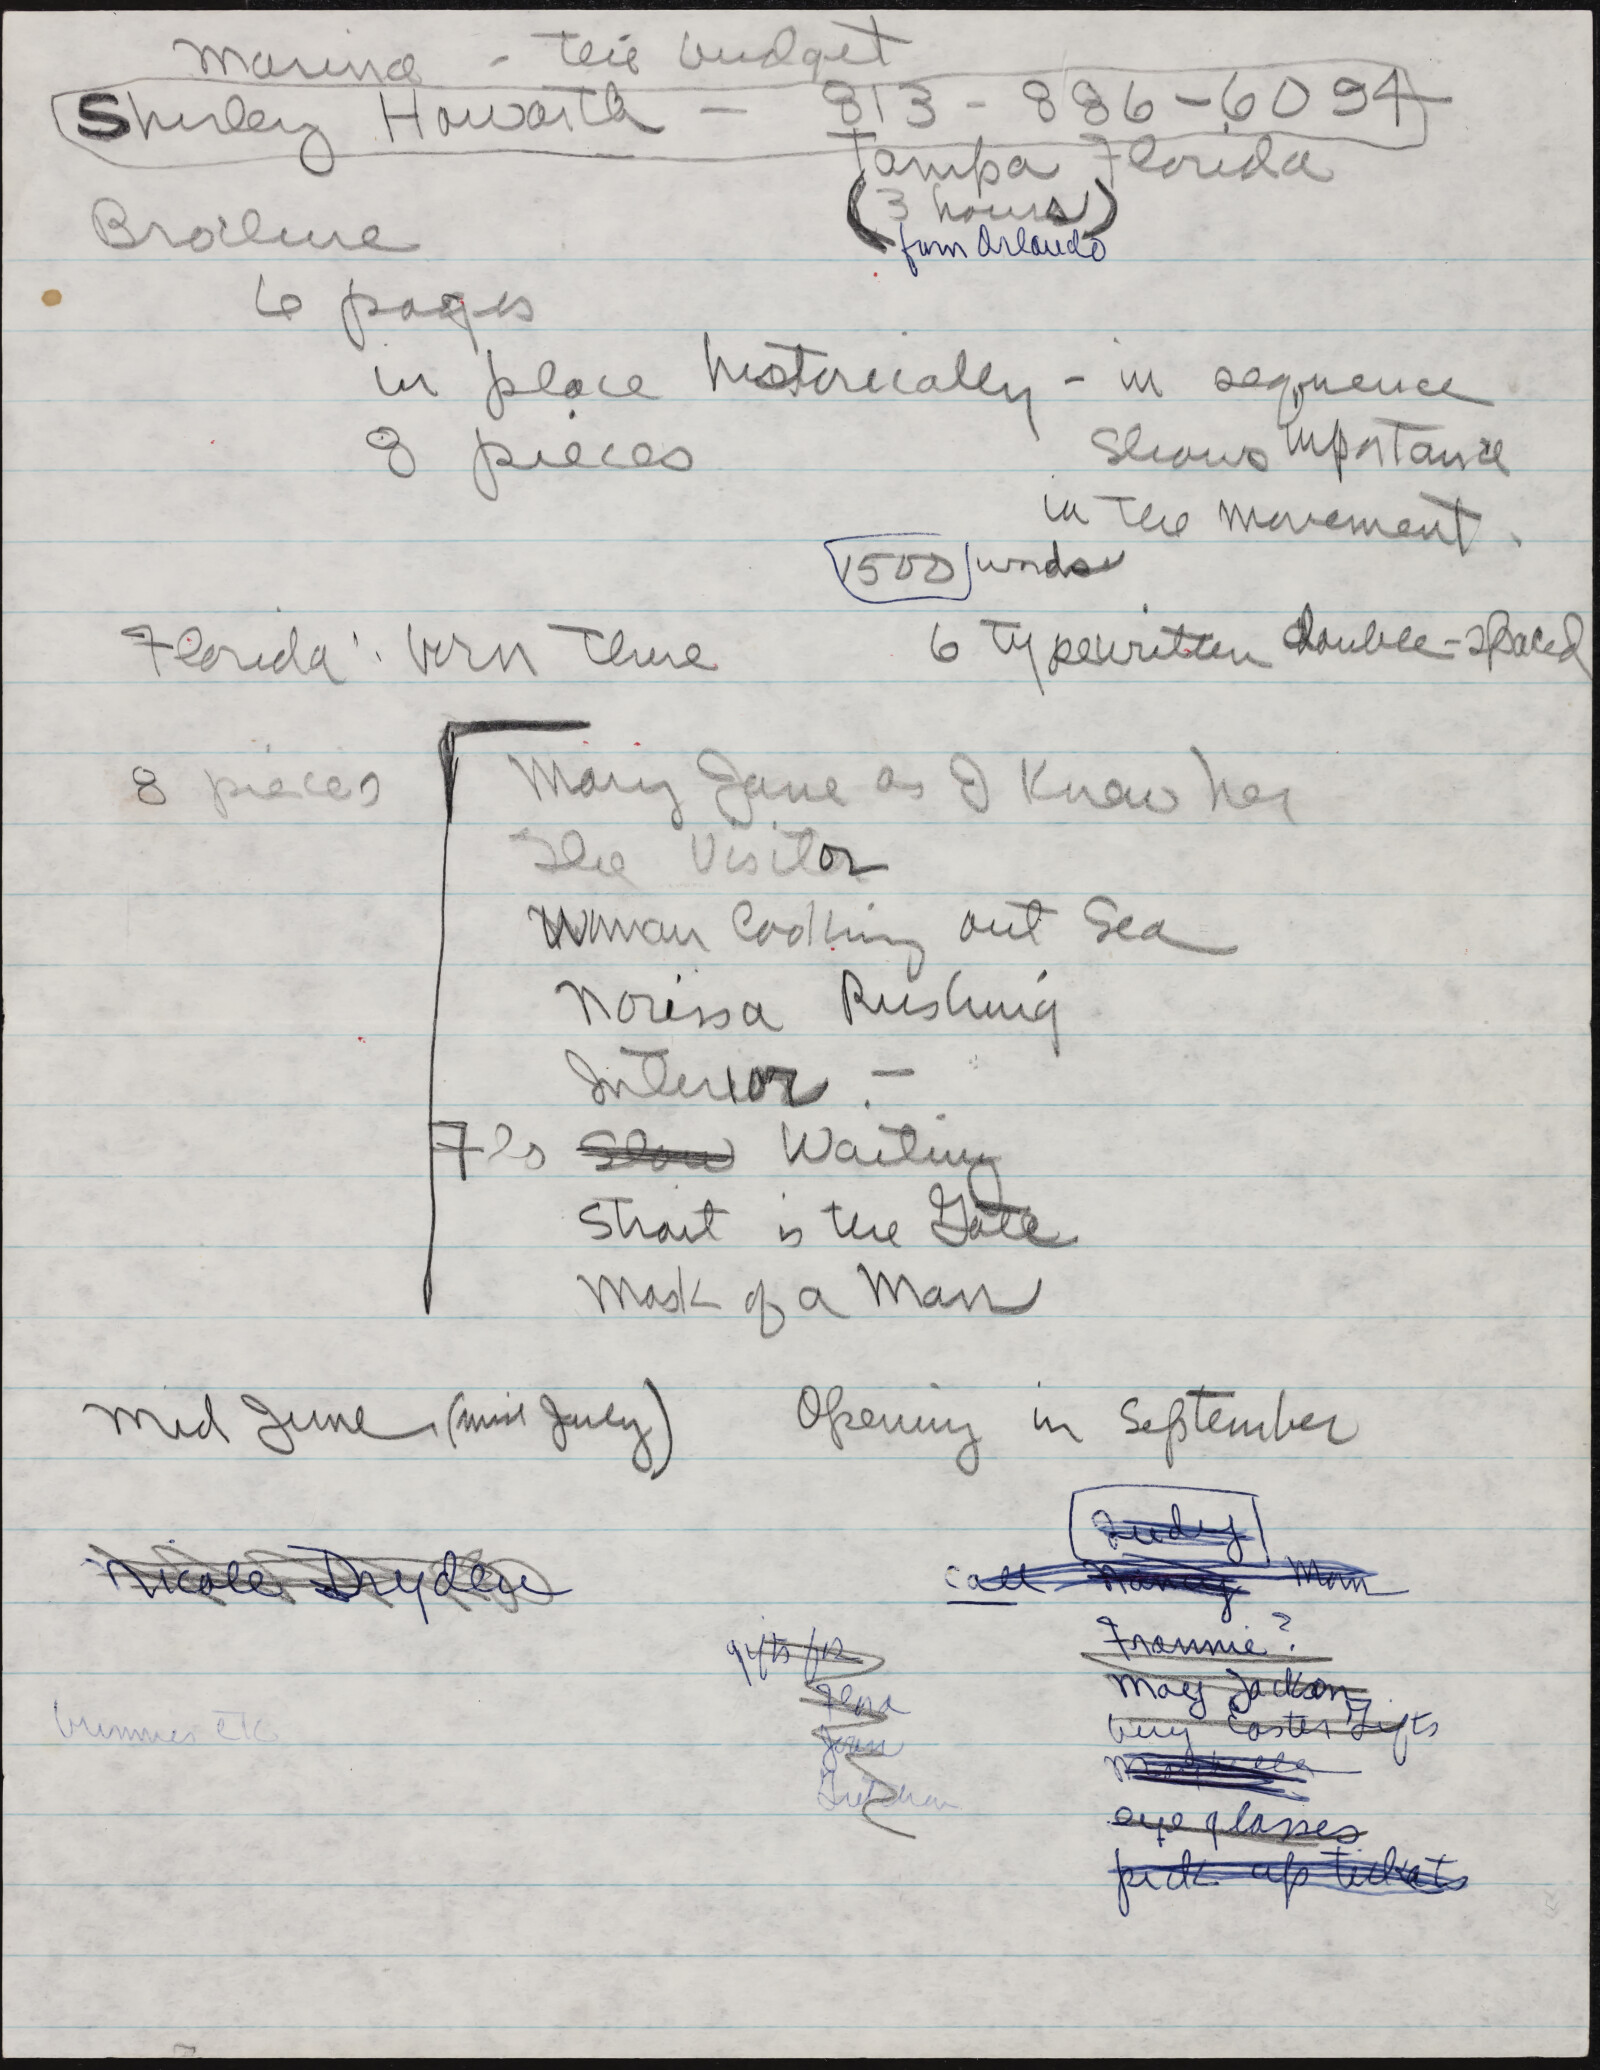 Marina - the budget
Shirley Howarth - 813-886-6094
Tampa Florida
(3 hours)
from Orlando
Brochure
6 pages
in place historically - in sequence
8 pieces
shows importance
in the movement.
1500 words
Florida: born there
6 typewritten double-spaced
8 pieces
Mary Jane as I Knew her
The Visitor
Woman Looking out Sea
Norissa Rushing
Interior -
70s Slow Waiting
Strait is the Gate
Mask of a Man
Mid June (mid July)
Opening in September
Judy
Nicole Dryden
call Nancy Mom
Frannie?
gifts for
Mary Jackson
Flora
buy Easter Gifts
Joan
Gretchen
eye glasses
pick up tickets